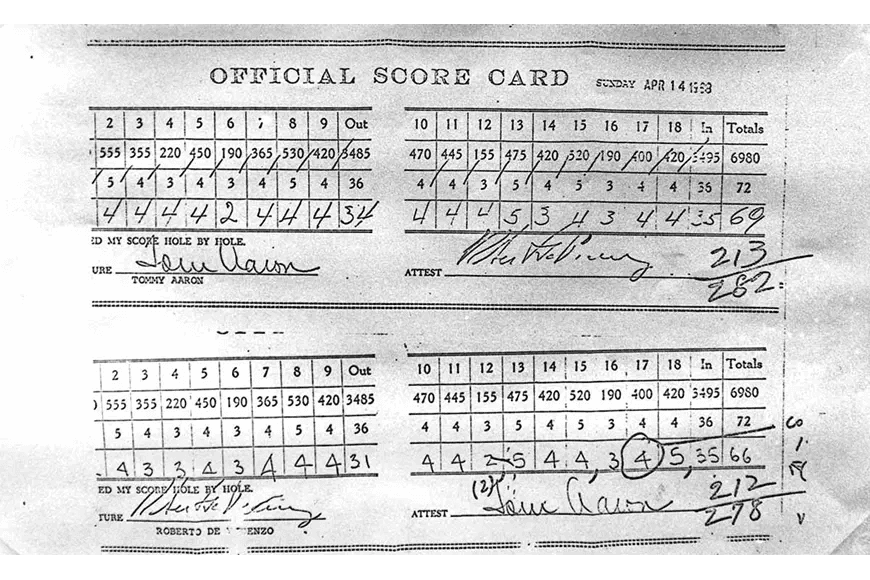 OFFICIAL SCORE CARD SUNDAY APR 14 1968
2 3 4 5 6 7 8 9 Out 10 11 12 13 14 15 16 17 18 In Totals
555 355 220 450 190 365 530 420 3485 470 445 155 475 420 520 190 400 420 3495 6980
5 4 3 4 3 4 5 4 36 4 4 3 5 4 5 3 4 4 36 72
4 4 4 4 2 4 4 4 34 4 4 4 5 3 4 3 4 4 35 69
ED MY SCORE HOLE BY HOLE.
213
URE Tom Aaron ATTEST
TOMMY AARON
282
2 3 4 5 6 7 8 9 Out 10 11 12 13 14 15 16 17 18 In Totals
555 355 220 450 190 365 530 420 3485 470 445 155 475 420 520 190 400 420 3495 6980
5 4 3 4 3 4 5 4 36 4 4 3 5 4 5 3 4 4 36 72
4 3 3 4 3 4 4 4 31 4 4 2 5 4 4 3 4 5 35 66
ED MY SCORE HOLE BY HOLE. (2) 212
TURE ATTEST Tom Aaron
278
ROBERTO DE